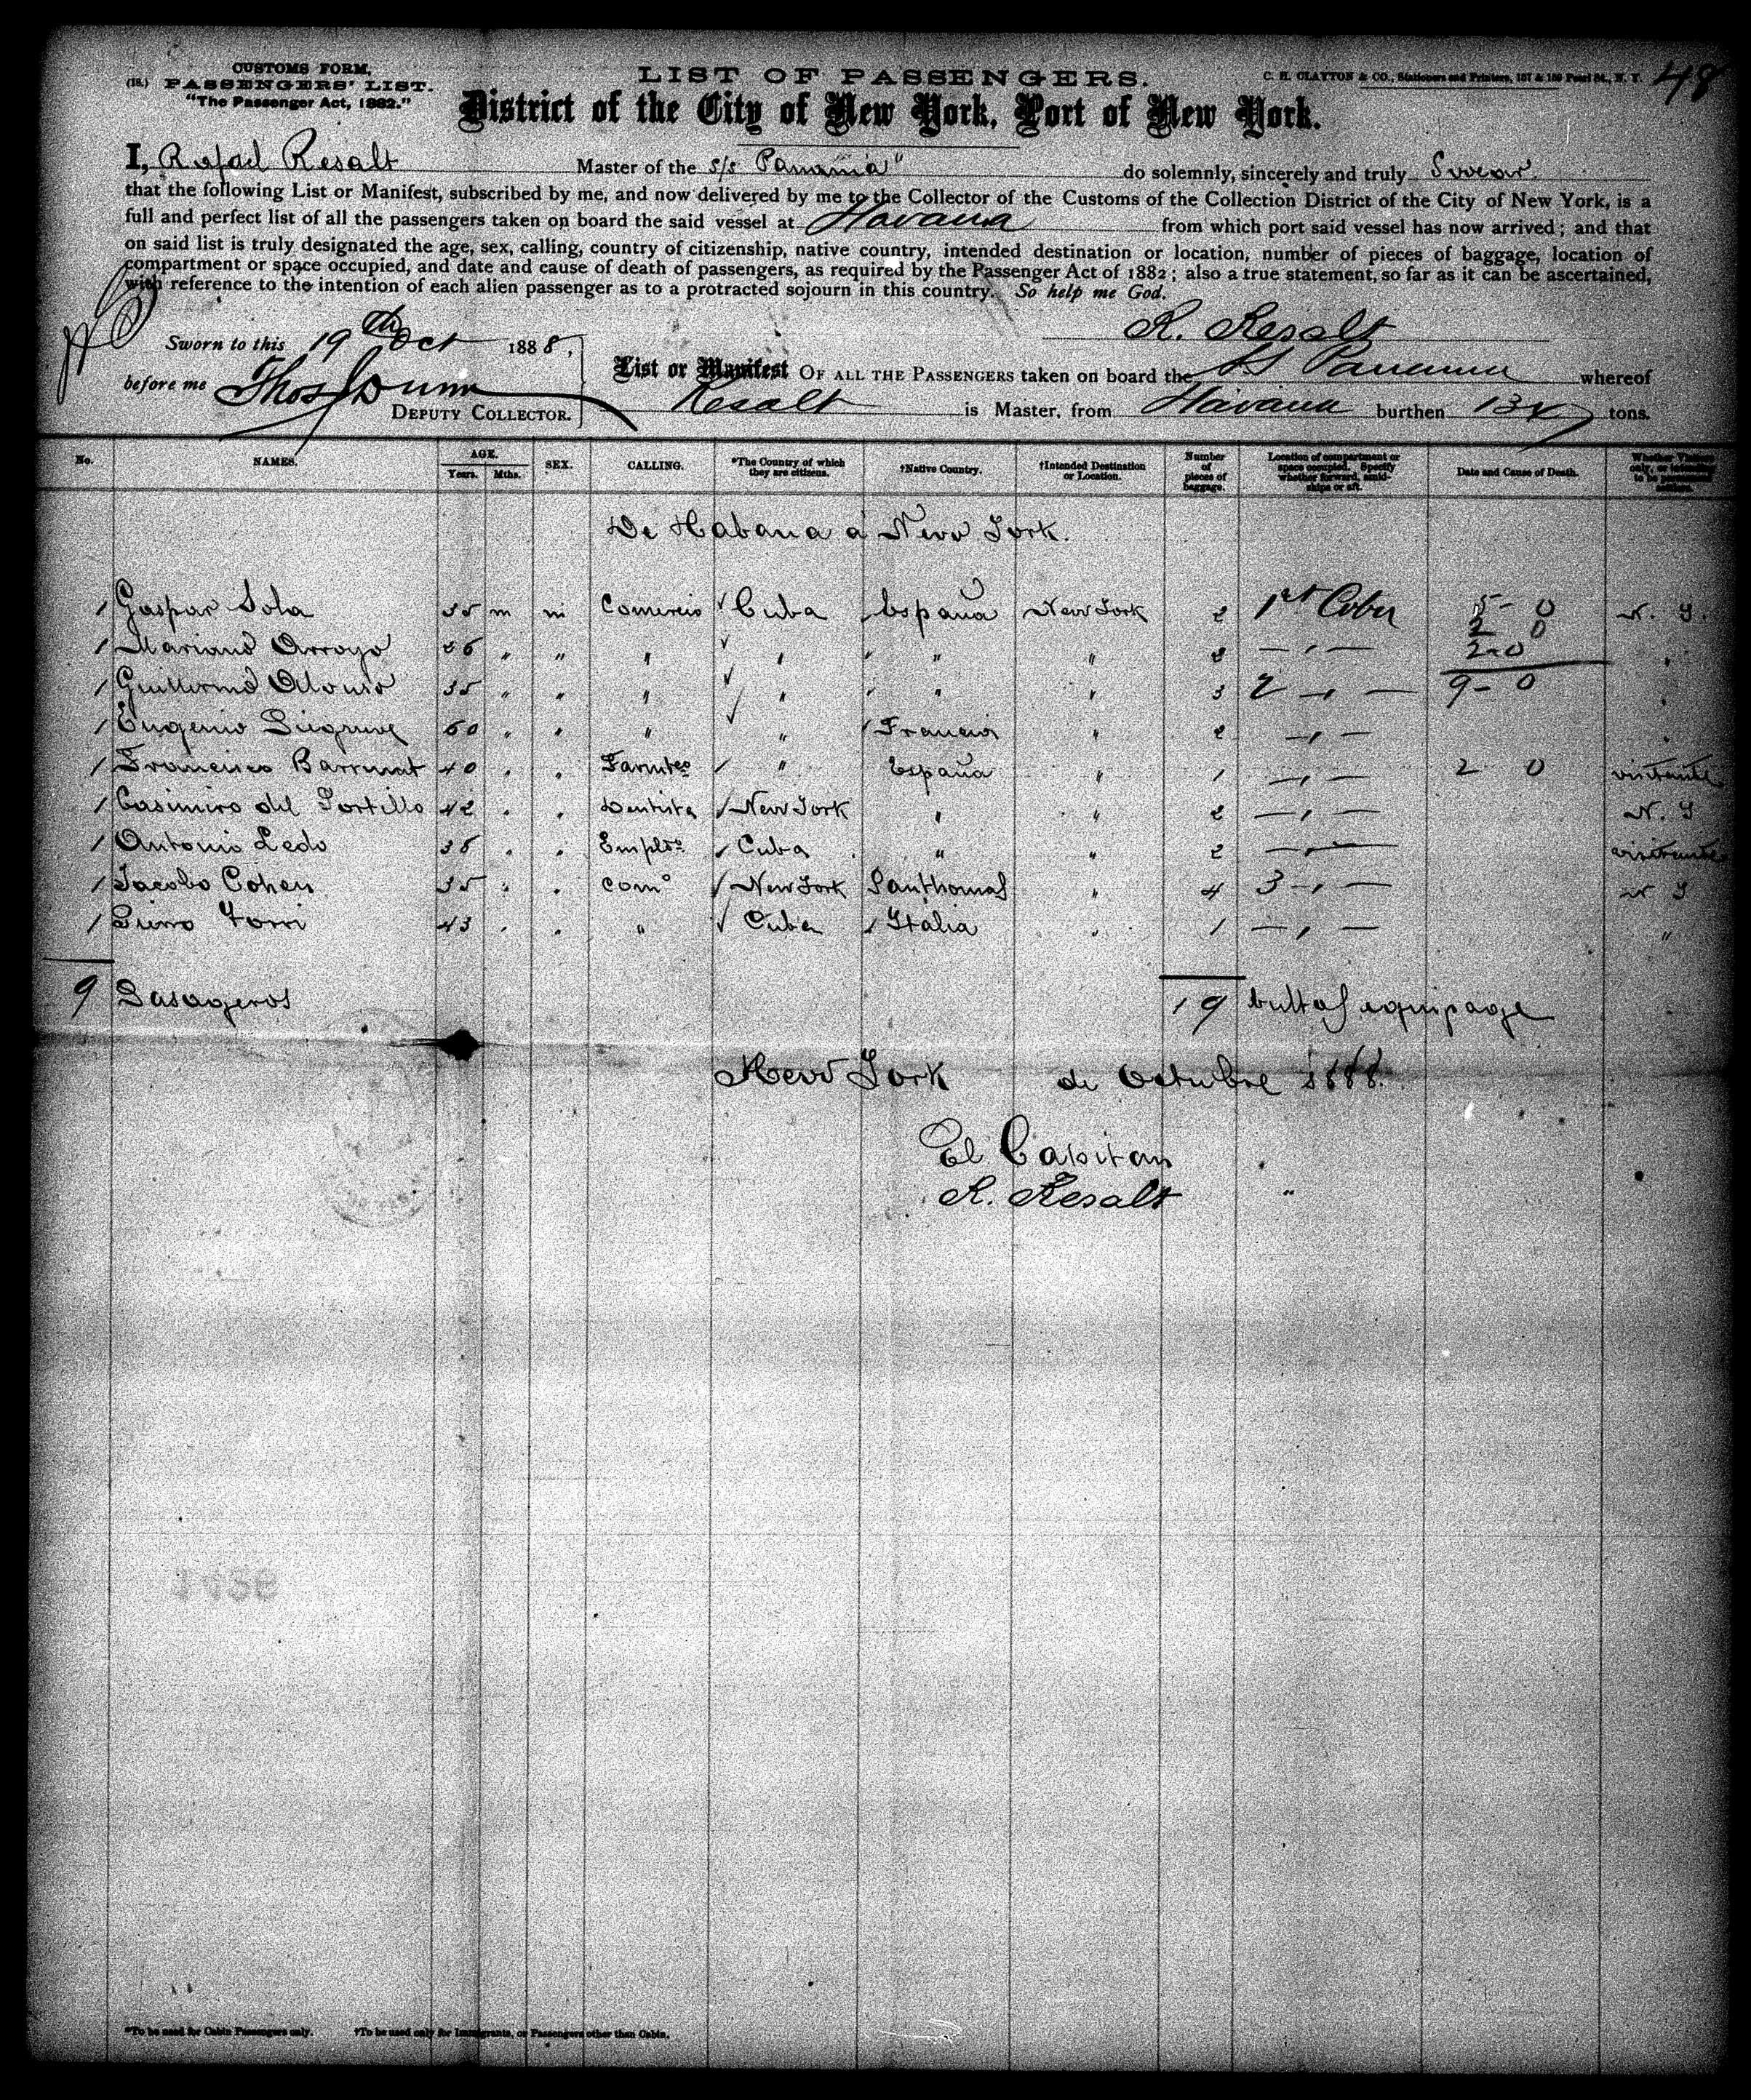 CUSTOMS FORM,
(18.) PASSENGERS' LIST.
"The Passenger Act, 1882."
LIST OF PASSENGERS.
C. H. CLAYTON & CO., Stationers and Printers, 157 & 159 Pearl St., N. Y.
48
District of the City of New York, Port of New York.
I, Rafael Resalt Master of the S/S "Panamá" do solemnly, sincerely and truly Swear
that the following List or Manifest, subscribed by me, and now delivered by me to the Collector of the Customs of the Collection District of the City of New York, is a
full and perfect list of all the passengers taken on board the said vessel at Havana from which port said vessel has now arrived; and that
on said list is truly designated the age, sex, calling, country of citizenship, native country, intended destination or location, number of pieces of baggage, location of
compartment or space occupied, and date and cause of death of passengers, as required by the Passenger Act of 1882; also a true statement, so far as it can be ascertained,
with reference to the intention of each alien passenger as to a protracted sojourn in this country. So help me God.
R. Resalt
Sworn to this 19th Oct 1888,
before me Thos Dunn
DEPUTY COLLECTOR.
List or Manifest OF ALL THE PASSENGERS taken on board the SS Panama whereof
Resalt is Master, from Havana burthen tons.
No. NAMES. AGE. Years. Mths. SEX. CALLING. *The Country of which they are citizens. †Native Country. †Intended Destination or Location. Number of pieces of baggage. Location of compartment or space occupied. Specify whether forward, amidships or aft. Date and Cause of Death.
De Habana a New York.
1 Gaspar Sola 35 m m Comercio Cuba España New York 2 1st Cabin 5-0 N. Y.
2 0
1 Mariano Arroyo 26 " " " " " " 2 — " — 2-0 "
1 Guillermo Alonso 35 " " " " " " 3 2 — " — 9-0 "
1 Eugenio 60 " " " " Francia " 2 — " — "
1 Francisco 40 " " Farmtco " España " 1 — " — 2 0 visitante
1 Casimiro del Portillo 42 " " Dentista New York " " 2 — " — N. Y
1 Antonio Ledo 38 " " Empldo Cuba " " 2 — " — visitante
1 Jacobo Cohen 35 " " Como New York Santhomas " 4 3 — " — N Y
1 Torri 43 " " " Cuba Italia " 1 — " — "
9 Pasageros 19 bultos equipage
New York de Octubre 1888.
El Capitan
R. Resalt
*To be used for Cabin Passengers only. †To be used only for Immigrants, or Passengers other than Cabin.